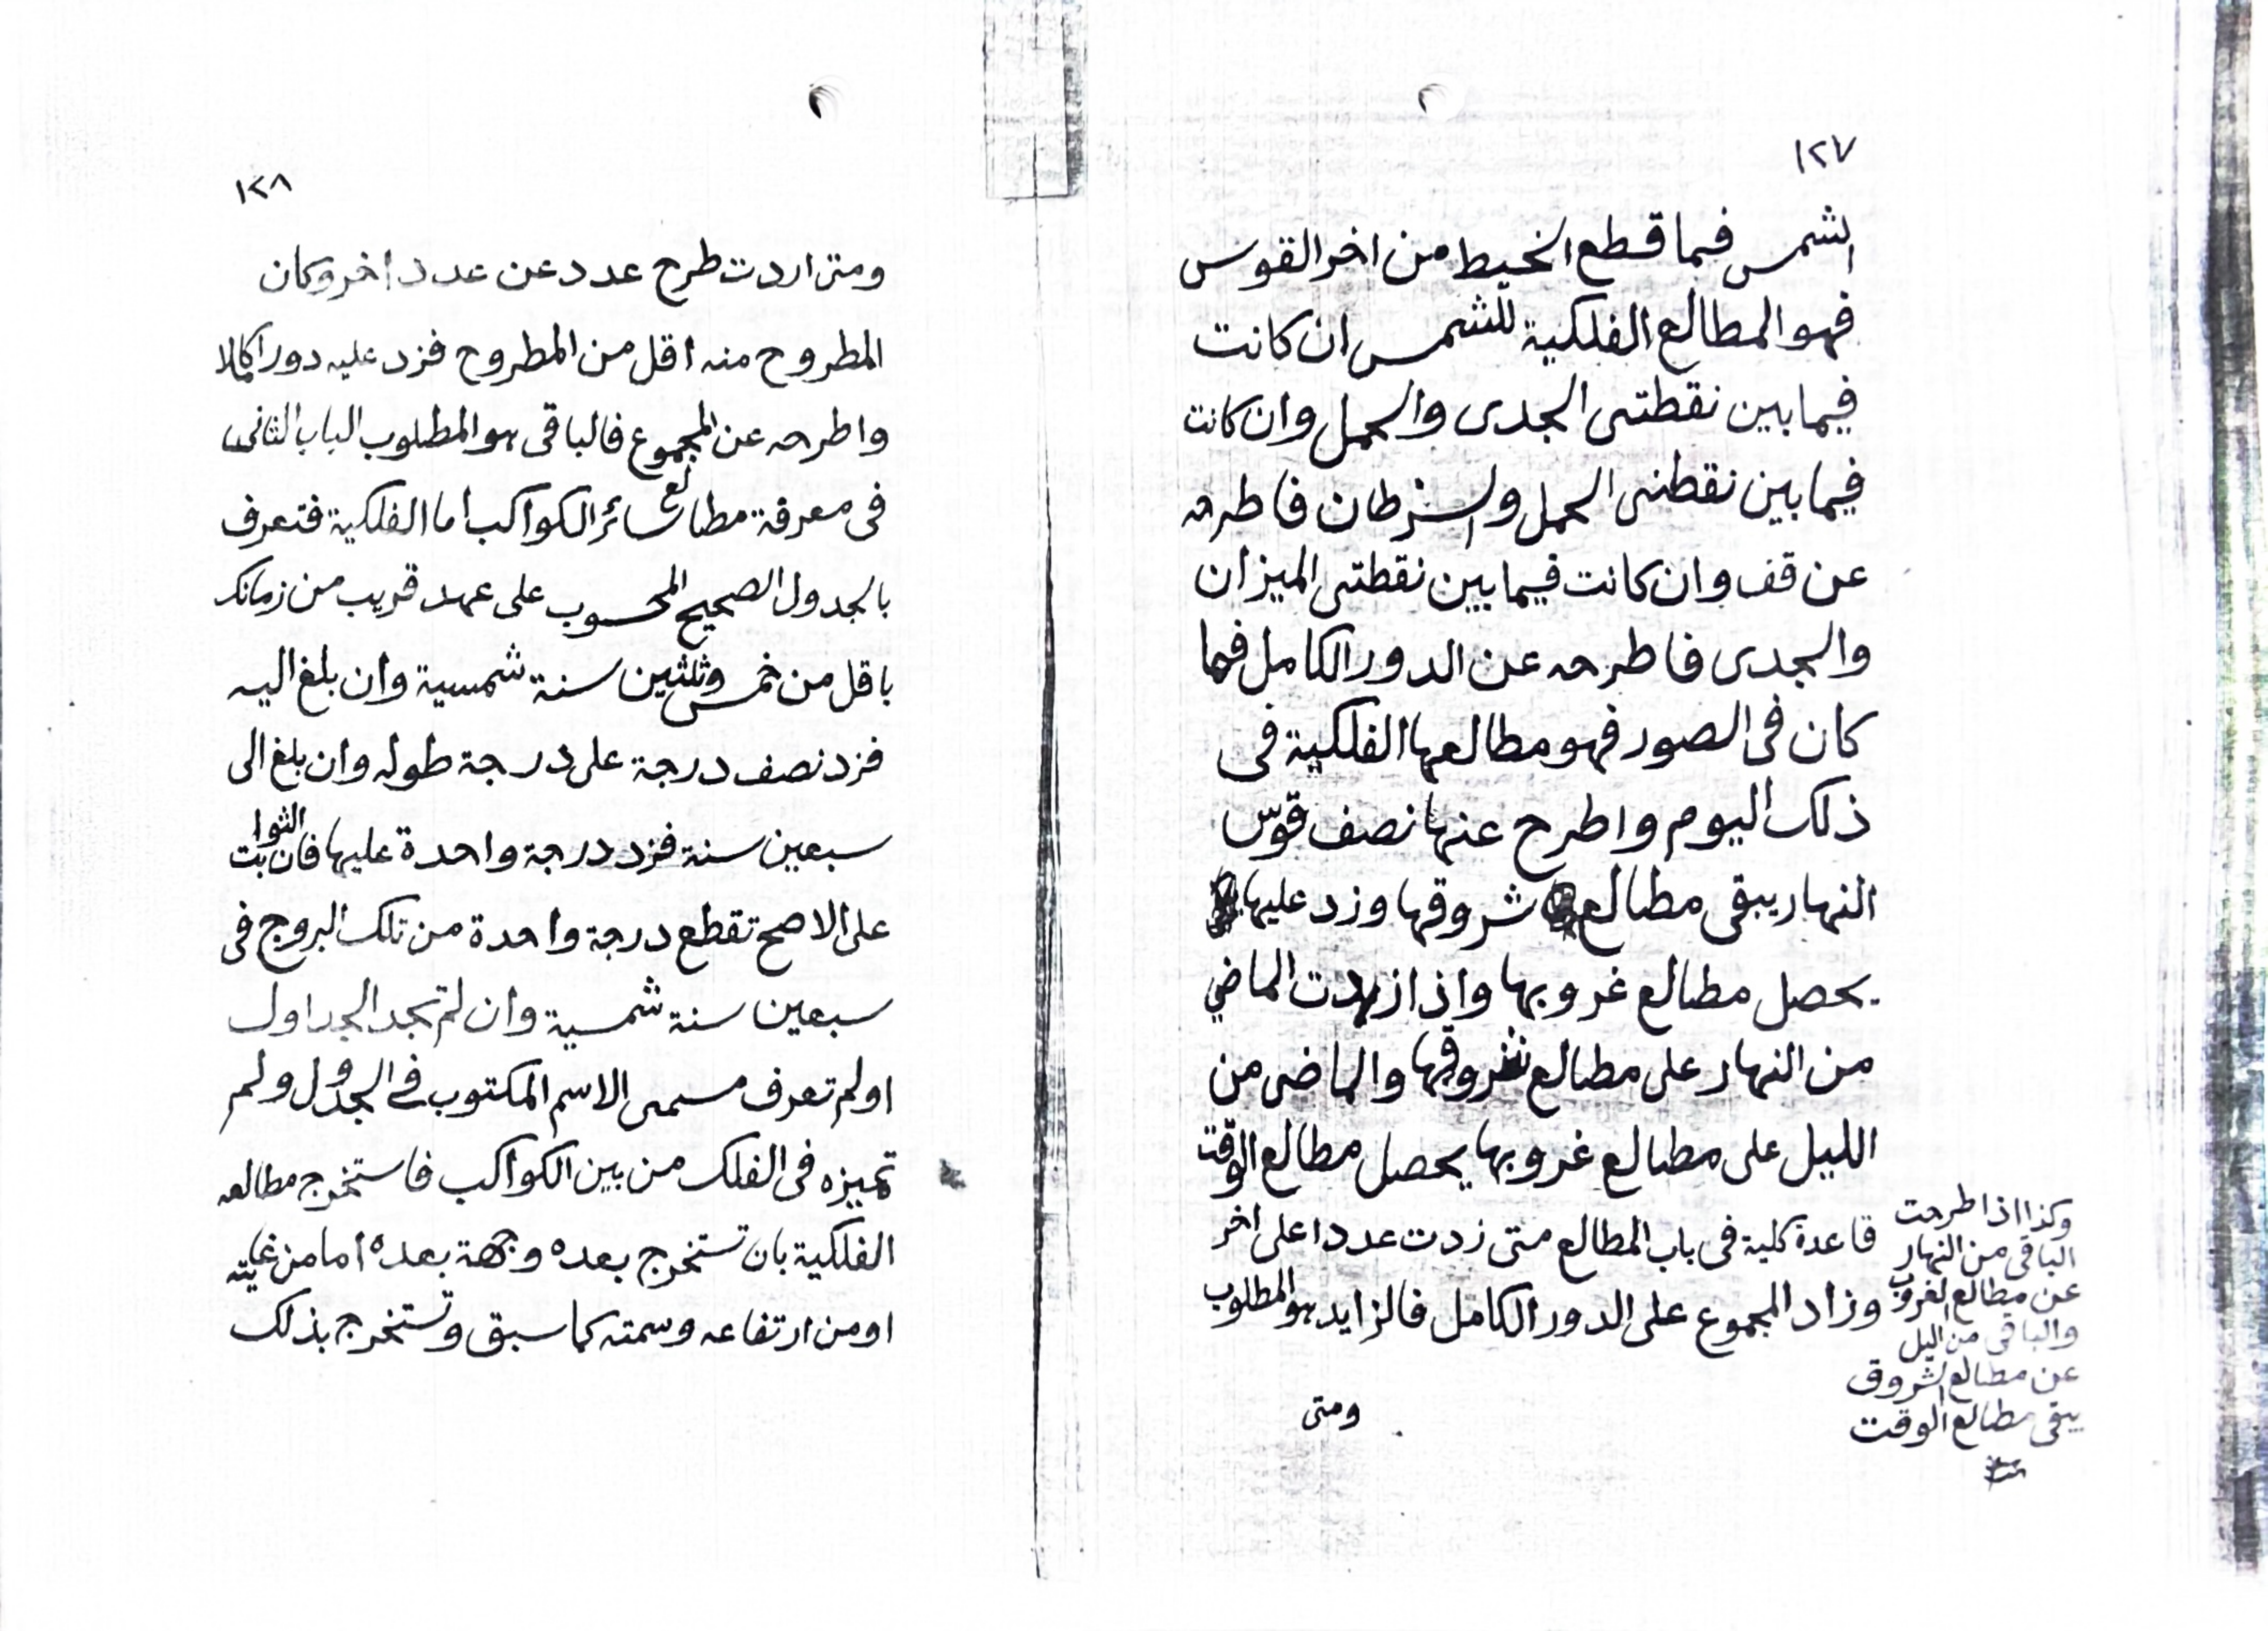 ١٢٧
الشمس فما قطع الخيط من اخر القوس
فهو المطالع الفلكية للشمس ان كانت
فيما بين نقطتى الجدى والحمل وان كانت
فيما بين نقطتى الحمل والسرطان فاطرحه
عن قف وان كانت فيما بين نقطتى الميزان
والجدى فاطرحه عن الدور الكامل فما
كان فى الصور فهو مطالعها الفلكية فى
ذلك اليوم واطرح عنها نصف قوس
النهار يبقى مطالع شروقها وزد عليها
يحصل مطالع غروبها واذا زدت الماضي
من النهار على مطالع شروقها والماضى من
الليل على مطالع غروبها يحصل مطالع الوقت
قاعدة كلية فى باب المطالع متى زدت عددا على اخر
وزاد المجموع على الدور الكامل فالزايد هو المطلوب
ومتى
وكذا اذا طرحت
الباقى من النهار
عن مطالع الغروب
والباقى من اليل
عن مطالع الشروق
يبقى مطالع الوقت
١٢٨
ومتى اردت طرح عدد عن عدد اخر وكان
المطروح منه اقل من المطروح فزد عليه دورا كاملا
واطرحه عن المجموع فالباقى هو المطلوب الباب الثانى
فى معرفة مطالع سائر الكواكب اما الفلكية فتعرف
بالجدول الصحيح المحسوب على عهد قريب من زمانك
باقل من خمس وثلثين سنة شمسية وان بلغ اليه
فزد نصف درجة على درجة طوله وان بلغ الى
سبعين سنة فزد درجة واحدة عليها فان الثوابت
على الاصح تقطع درجة واحدة من تلك البروج فى
سبعين سنة شمسية وان لم تجد الجداول
اولم تعرف مسمى الاسم المكتوب فى الجدول ولم
تميزه فى الفلك من بين الكواكب فاستخرج مطالعه
الفلكية بان تستخرج بعده وجهة بعده اما من غايته
او من ارتفاعه وسمته كما سبق وتستخرج بذلك